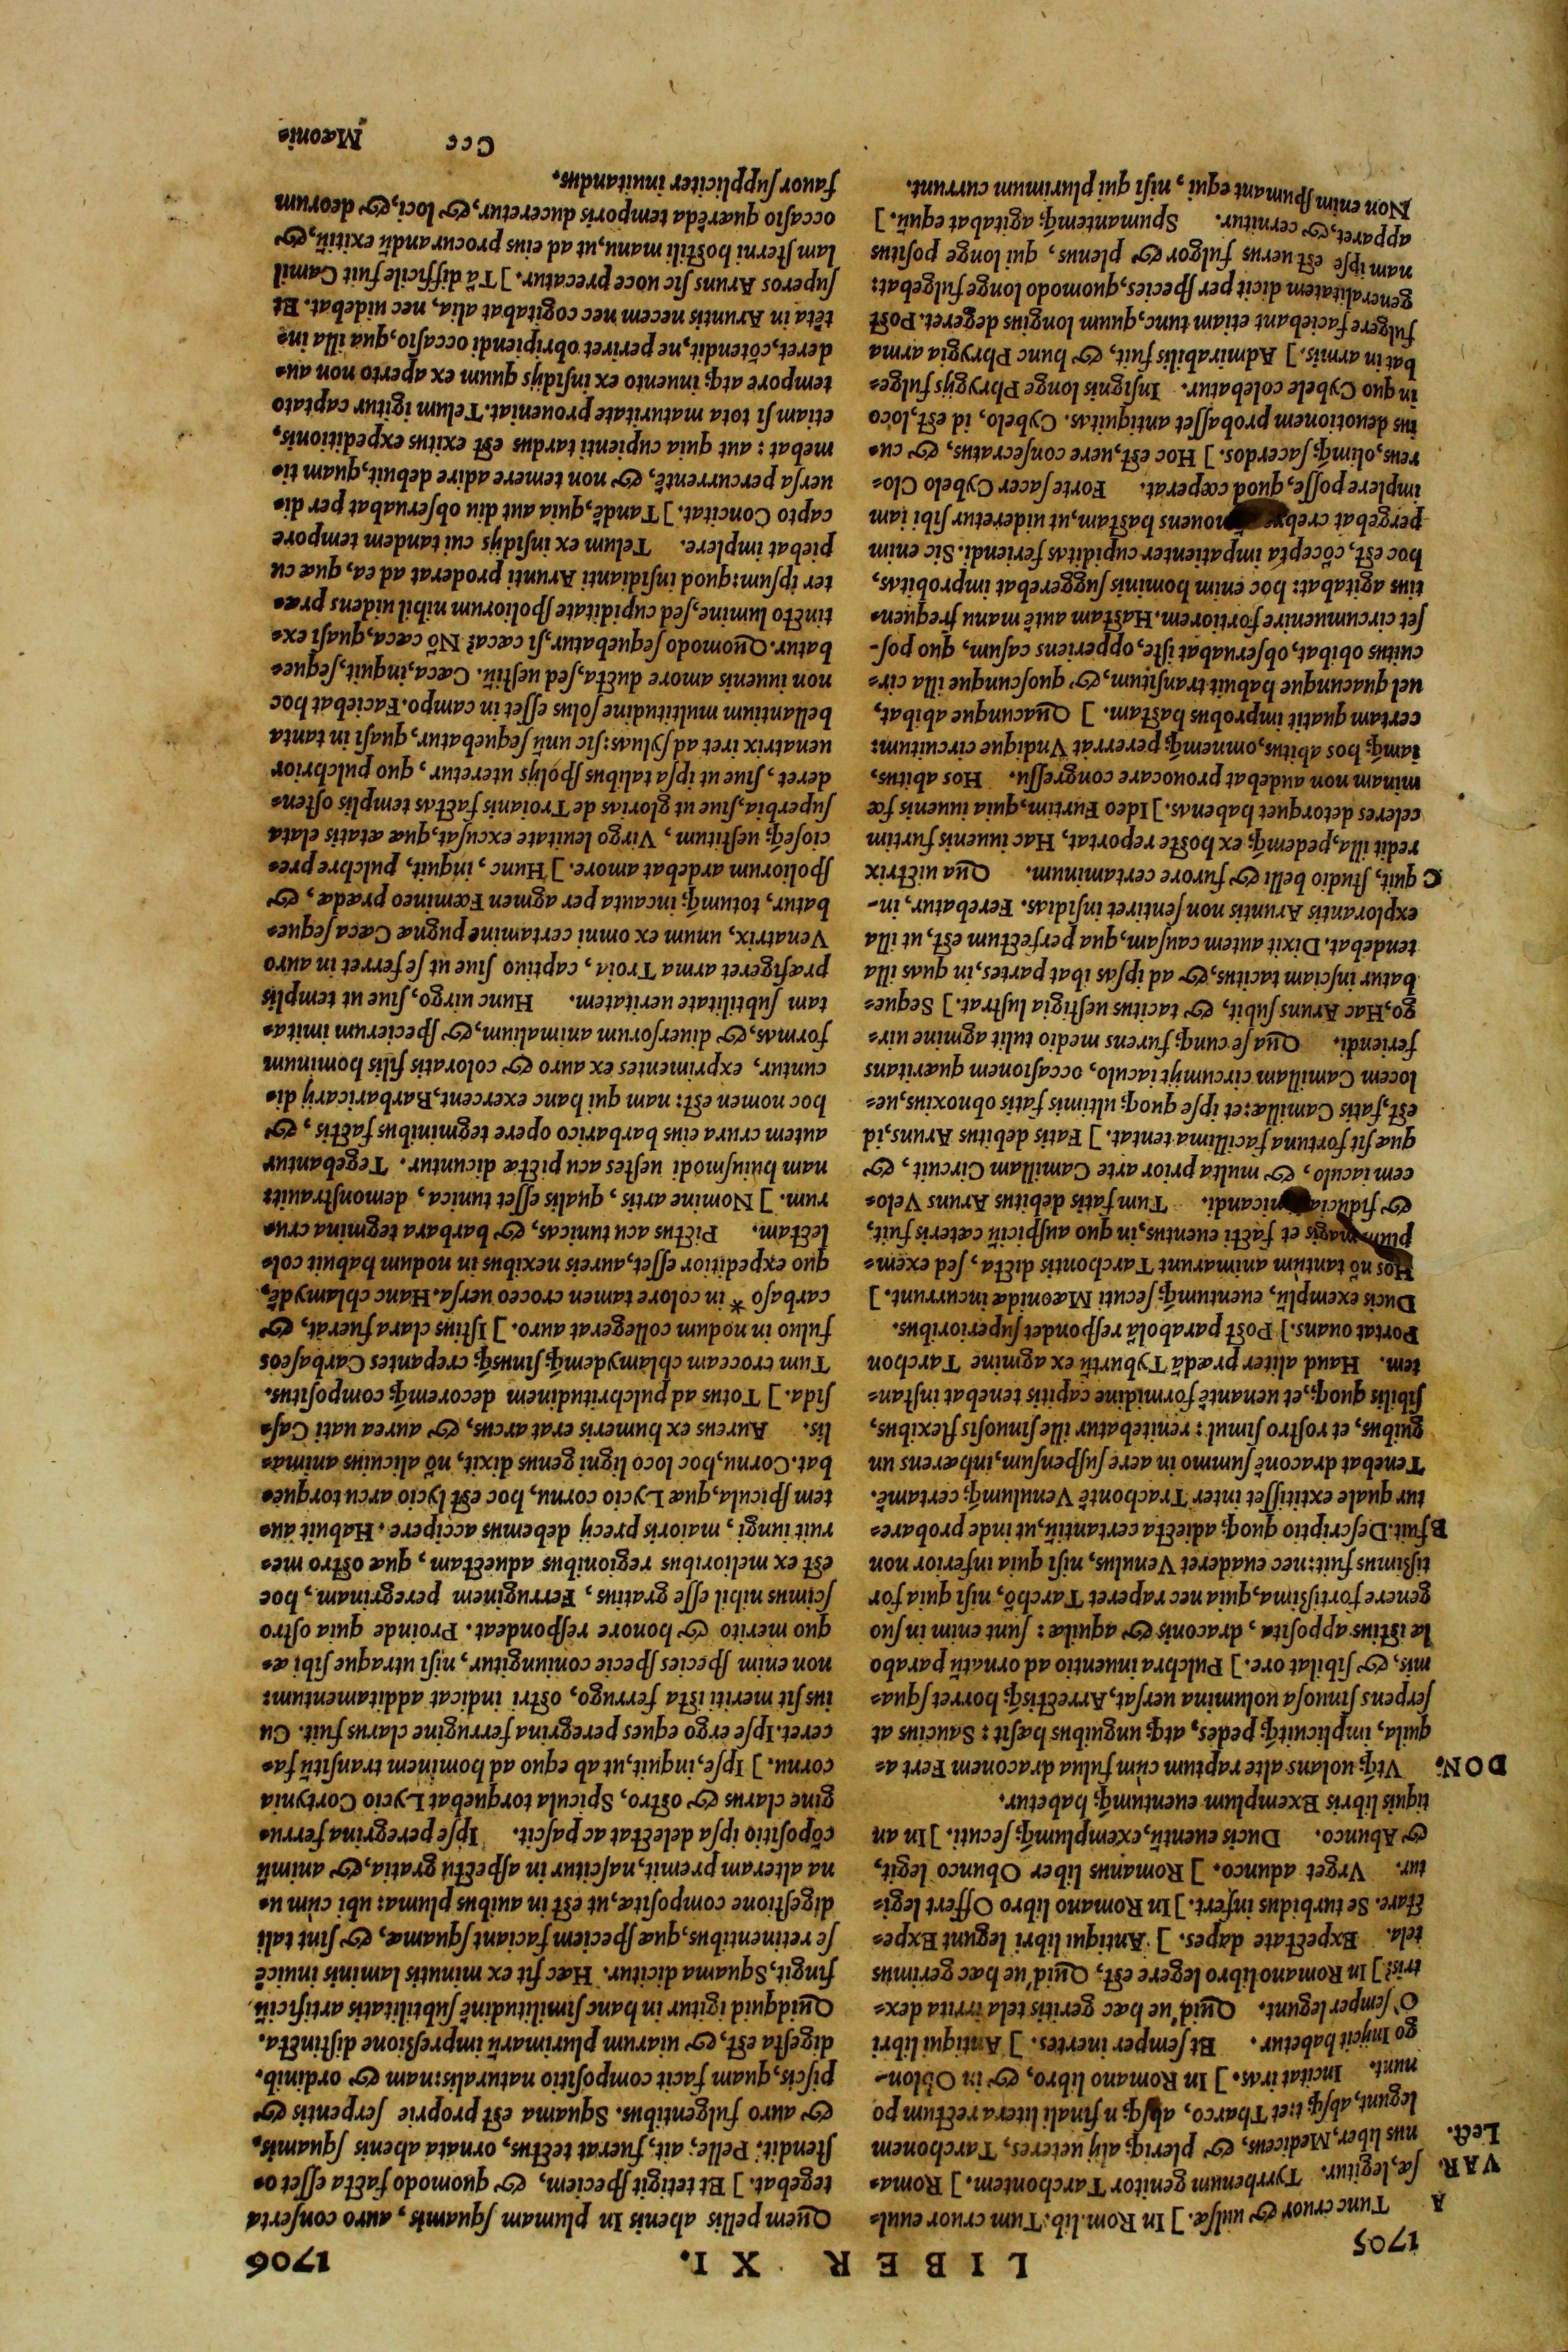 1705
LIBER XI.
1706
A
Tunc cruor & uulsæ.] In Rom.lib: Tum cruor euul⸗
VAR.
sæ, legitur. Tyrrhenum genitor Tarchontem.] Roma⸗
Lect.
nus liber, Mediceus, & pleriq; alij ueteres, Tarchonem
legunt, absq; t:et Tharco, absq; n finali litera rectum po
nunt. Incitat iras.] In Romano libro, & in Oblon-
go Inijcit habetur. Et semper inertes.] Antiqui libri
O' semper legunt. Quid'ue hæc geritis tela irrita dex⸗
tris?] In Romano libro legere est, Quid'ue hæc gerimus
tela. Expectate dapes.] Antiqui libri legunt Expe⸗
ctare. Se turbidus infert.] In Romano libro Offert legi⸗
tur. Vrget adunco.] Romanus liber Obunco legit,
& Abunco. Ducis euentū, exemplumq́; secuti.] In an
tiquis libris Exemplum euentumq́; habetur.
DON.
Vtq́; uolans alte raptum cùm fulua draconem Fert a⸗
quila, implicuitq́; pedes, atq; unguibus hæsit: Saucius at
serpens sinuosa uolumina uersat, Arrectisq́; horret squa⸗
mis, & sibilat ore.] Pulchra inuentio ad ornatū parabo
læ istius apposita, draconis & aquilæ: sunt enim in suo
genere fortißima, quia nec raperet Tarchō, nisi quia for
tißimus fuit: nec euaderet Venulus, nisi quia inferior non
B
fuit. Descriptio quoq; adiecta certantiū, ut inde probare⸗
tur quale extitisset inter Trachontē Venulumq́; certamē.
Tenebat draconē summo in aere suspensum, inhærens un
guibus, et rostro simul: renitebatur ille sinuosis flexibus,
sibilis quoq;, et uenantē formidine capitis tenebat instan⸗
tem. Haud aliter prædā Tyburtū ex agmine Tarchon
Portat ouans.] Post parabolā respondet superioribus.
Ducis exemplū, euentumq́; secuti Mæonidæ incurrunt.]
Hos nō tantùm animarunt Tarchontis dicta, sed exem⸗
plum magis et facti euentus, in quo auspiciū cæteris fuit,
& fiducia dimicandi. Tum fatis debitus Aruns Velo⸗
cem iaculo, & multa prior arte Camillam Circuit, &
quæ sit fortuna facillima tentat.] Fatis debitus Aruns, id
est, fatis Camillæ: et ipse quoq; ultimis fatis obnoxius, ue⸗
locem Camillam circumijt iaculo, occasionem quæritans
feriendi. Qua se cunq; furens medio tulit agmine uir⸗
go, Hac Aruns subit, & tacitus uestigia lustrat.] Seque⸗
batur insciam tacitus, & ad ipsas ibat partes, in quas illa
tendebat. Dixit autem causam, qua perfectum est, ut illa
explorantis Aruntis non sentiret insidias. Ferebatur, in-
C
quit, studio belli & furore certaminum. Qua uictrix
redit illa, pedemq́; ex hoste reportat, Hac iuuenis furtim
celeres detorquet habenas.] Ideo Furtim, quia iuuenis fœ
minam non audebat prouocare congressu. Hos abitus,
iamq́; hos abitus, omnemq́; pererrat Vndique circuitum:
certam quatit improbus hastam.] Quacunque abibat,
uel quacunque habuit transitum, & quoscunque illa cir⸗
cuitus obibat, obseruabat iste, opperiens casum, quo pos-
set circumuenire fortiorem. Hastam autē manu frequen⸗
tius agitabat: hoc enim hominis suggerebat improbitas,
hoc est, cōcepta impatienter cupiditas feriendi. Sic enim
pergebat crebro mouens hastam, ut uideretur sibi iam
implere posse, quod cœperat. Forte sacer Cybelo Clo⸗
reus, olimq́; sacerdos.] Hoc est, uere consecratus, & cu⸗
ius deuotionem probasset antiquitas. Cybelo, id est, loco
in quo Cybele colebatur. Insignis longe Phrygijs fulge⸗
bat in armis.] Admirabilis fuit, & hunc Phrygia arma
fulgere faciebant etiam tunc, quum longius degeret. Post
generalitatem dicit per species, quomodo longe fulgebat:
nam ipse est uerus fulgor & plenus, qui longe positus
apparet, & cernitur. Spumantemq́; agitabat equū.]
Non enim spumant equi, nisi qui plurimum currunt.
Quem pellis ahenis In plumam squamis, auro conserta
tegebat.] Et tetigit speciem, & quomodo facta esset o⸗
stendit: Pelle, ait, fuerat tectus, ornata ahenis squamis,
& auro fulgentibus. Squama est proprie serpentis &
piscis, quam facit compositio naturalis: nam & ordinib.
digesta est, & uiarum plurimarū impreßione distincta.
Quidquid igitur in hanc similitudinē subtilitatis artificiū
fingit, Squama dicitur. Hæc fit ex minutis laminis inuicē
se retinentibus, quæ speciem faciant squamæ, & sint tali
digestione compositæ, ut est in auibus pluma: ubi cùm u⸗
na alteram premit, nascitur in aspectu gratia, & animū
cōpositio ipsa delectat ac pascit. Ipse peregrina ferru⸗
gine clarus & ostro, Spicula torquebat Lycio Cortynia
cornu.] Ipse, inquit, ut ab equo ad hominem transitū fa⸗
ceret. Ipse ergo eques peregrina ferrugine clarus fuit. Cu
ius sit meriti ista ferrugo, ostri indicat additamentum:
non enim species specie coniungitur, nisi utraque sibi æ⸗
quo merito & honore respondeat. Proinde quia ostro
scimus nihil esse gratius, Ferruginem peregrinam, hoc
est ex melioribus regionibus aduectam, quæ ostro me⸗
ruit iungi, maioris precij debemus accipere. Habuit au⸗
tem spicula, quæ Lycio cornu, hoc est lycio arcu torque⸗
bat. Cornu, hoc loco ligni genus dixit, nō alicuius anima⸗
lis. Aureus ex humeris erat arcus, & aurea uati Cas⸗
sida.] Totus ad pulchritudinem decoremq́; compositus.
Tum croceam chlamydemq́; sinusq́; crepantes Carbaseos
fuluo in nodum collegerat auro.] Istius clara fuerat, &
carbaso * in colore tamen croceo uersa. Hanc chlamydē,
quo expeditior esset, aureis nexibus in nodum habuit col⸗
lectam. Pictus acu tunicas, & barbara tegmina cru⸗
rum.] Nomine artis, qualis esset tunica, demonstrauit:
nam huiusmodi uestes acu pictæ dicuntur. Tegebantur
autem crura eius barbarico opere tegminibus factis, &
hoc nomen est: nam qui hanc exercent, Barbaricarij di⸗
cuntur, exprimentes ex auro & coloratis filis hominum
formas, & diuersorum animalium, & specierum imita⸗
tam subtilitate ueritatem. Hunc uirgo, siue ut templis
præfigeret arma Troia, captiuo siue ut se ferret in auro
Venatrix, unum ex omni certamine pugnæ Cæca seque⸗
batur, totumq́; incauta per agmen Fœmineo prædæ, &
spoliorum ardebat amore.] Hunc, inquit, pulchre pre⸗
cioseq́; uestitum, Virgo leuitate excusat, quæ ætatis elata
superbia, siue ut glorias de Troianis factas templis osten⸗
deret, siue ut ipsa talibus spolijs uteretur, quo pulchrior
uenatrix iret ad syluas: sic unū sequebatur, quasi in tanta
bellantium multitudine solus esset in campo. Faciebat hoc
non iuuenis amore ducta, sed uestiū. Cæca, inquit, seque⸗
batur. Quomodo sequebatur, si cæca? Nō cæca, quasi ex⸗
tincto lumine, sed cupiditate spoliorum nihil uidens præ⸗
ter ipsum: quod insidianti Arunti proderat ad ea, quæ cu
piebat implere. Telum ex insidijs cui tandem tempore
capto Concitat.] Tandē, quia aut diu obseruabat per di⸗
uersa percurrentē, & non temere adire debuit, quam ti⸗
mebat: aut quia cupienti tardus est exitus expeditionis,
etiam si tota maturitate proueniat. Telum igitur captato
tempore atq; inuento ex insidijs quum ex aperto non au⸗
deret, cōtendit, ne periret obripiendi occasio, qua illa in⸗
tēta in Aruntis necem nec cogitabat alia, nec uidebat. Et
superos Aruns sic uoce precatur.] Tā difficile fuit Camil
lam sterni hostili manu, ut ad eius procurandū exitiū, &
occasio quærēda temporis duceretur, & loci, & deorum
fauor suppliciter inuitandus.
Ccc
Mæonis